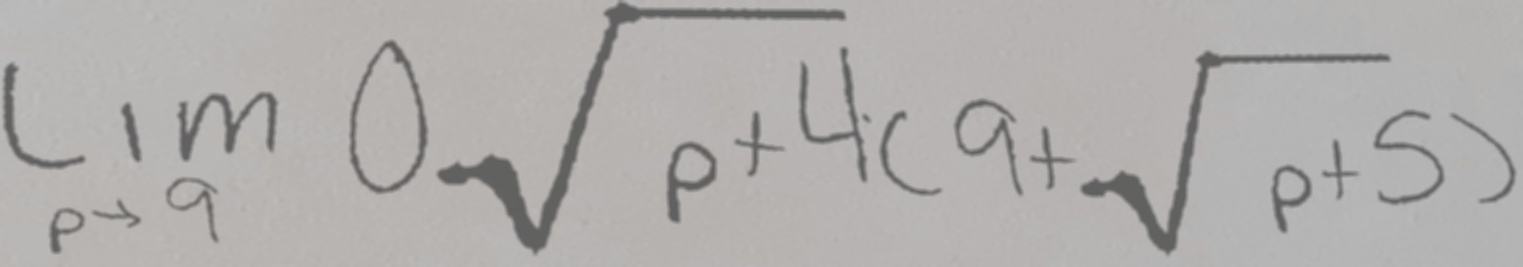 lim p→9 0√p+4·(9+√p+5)